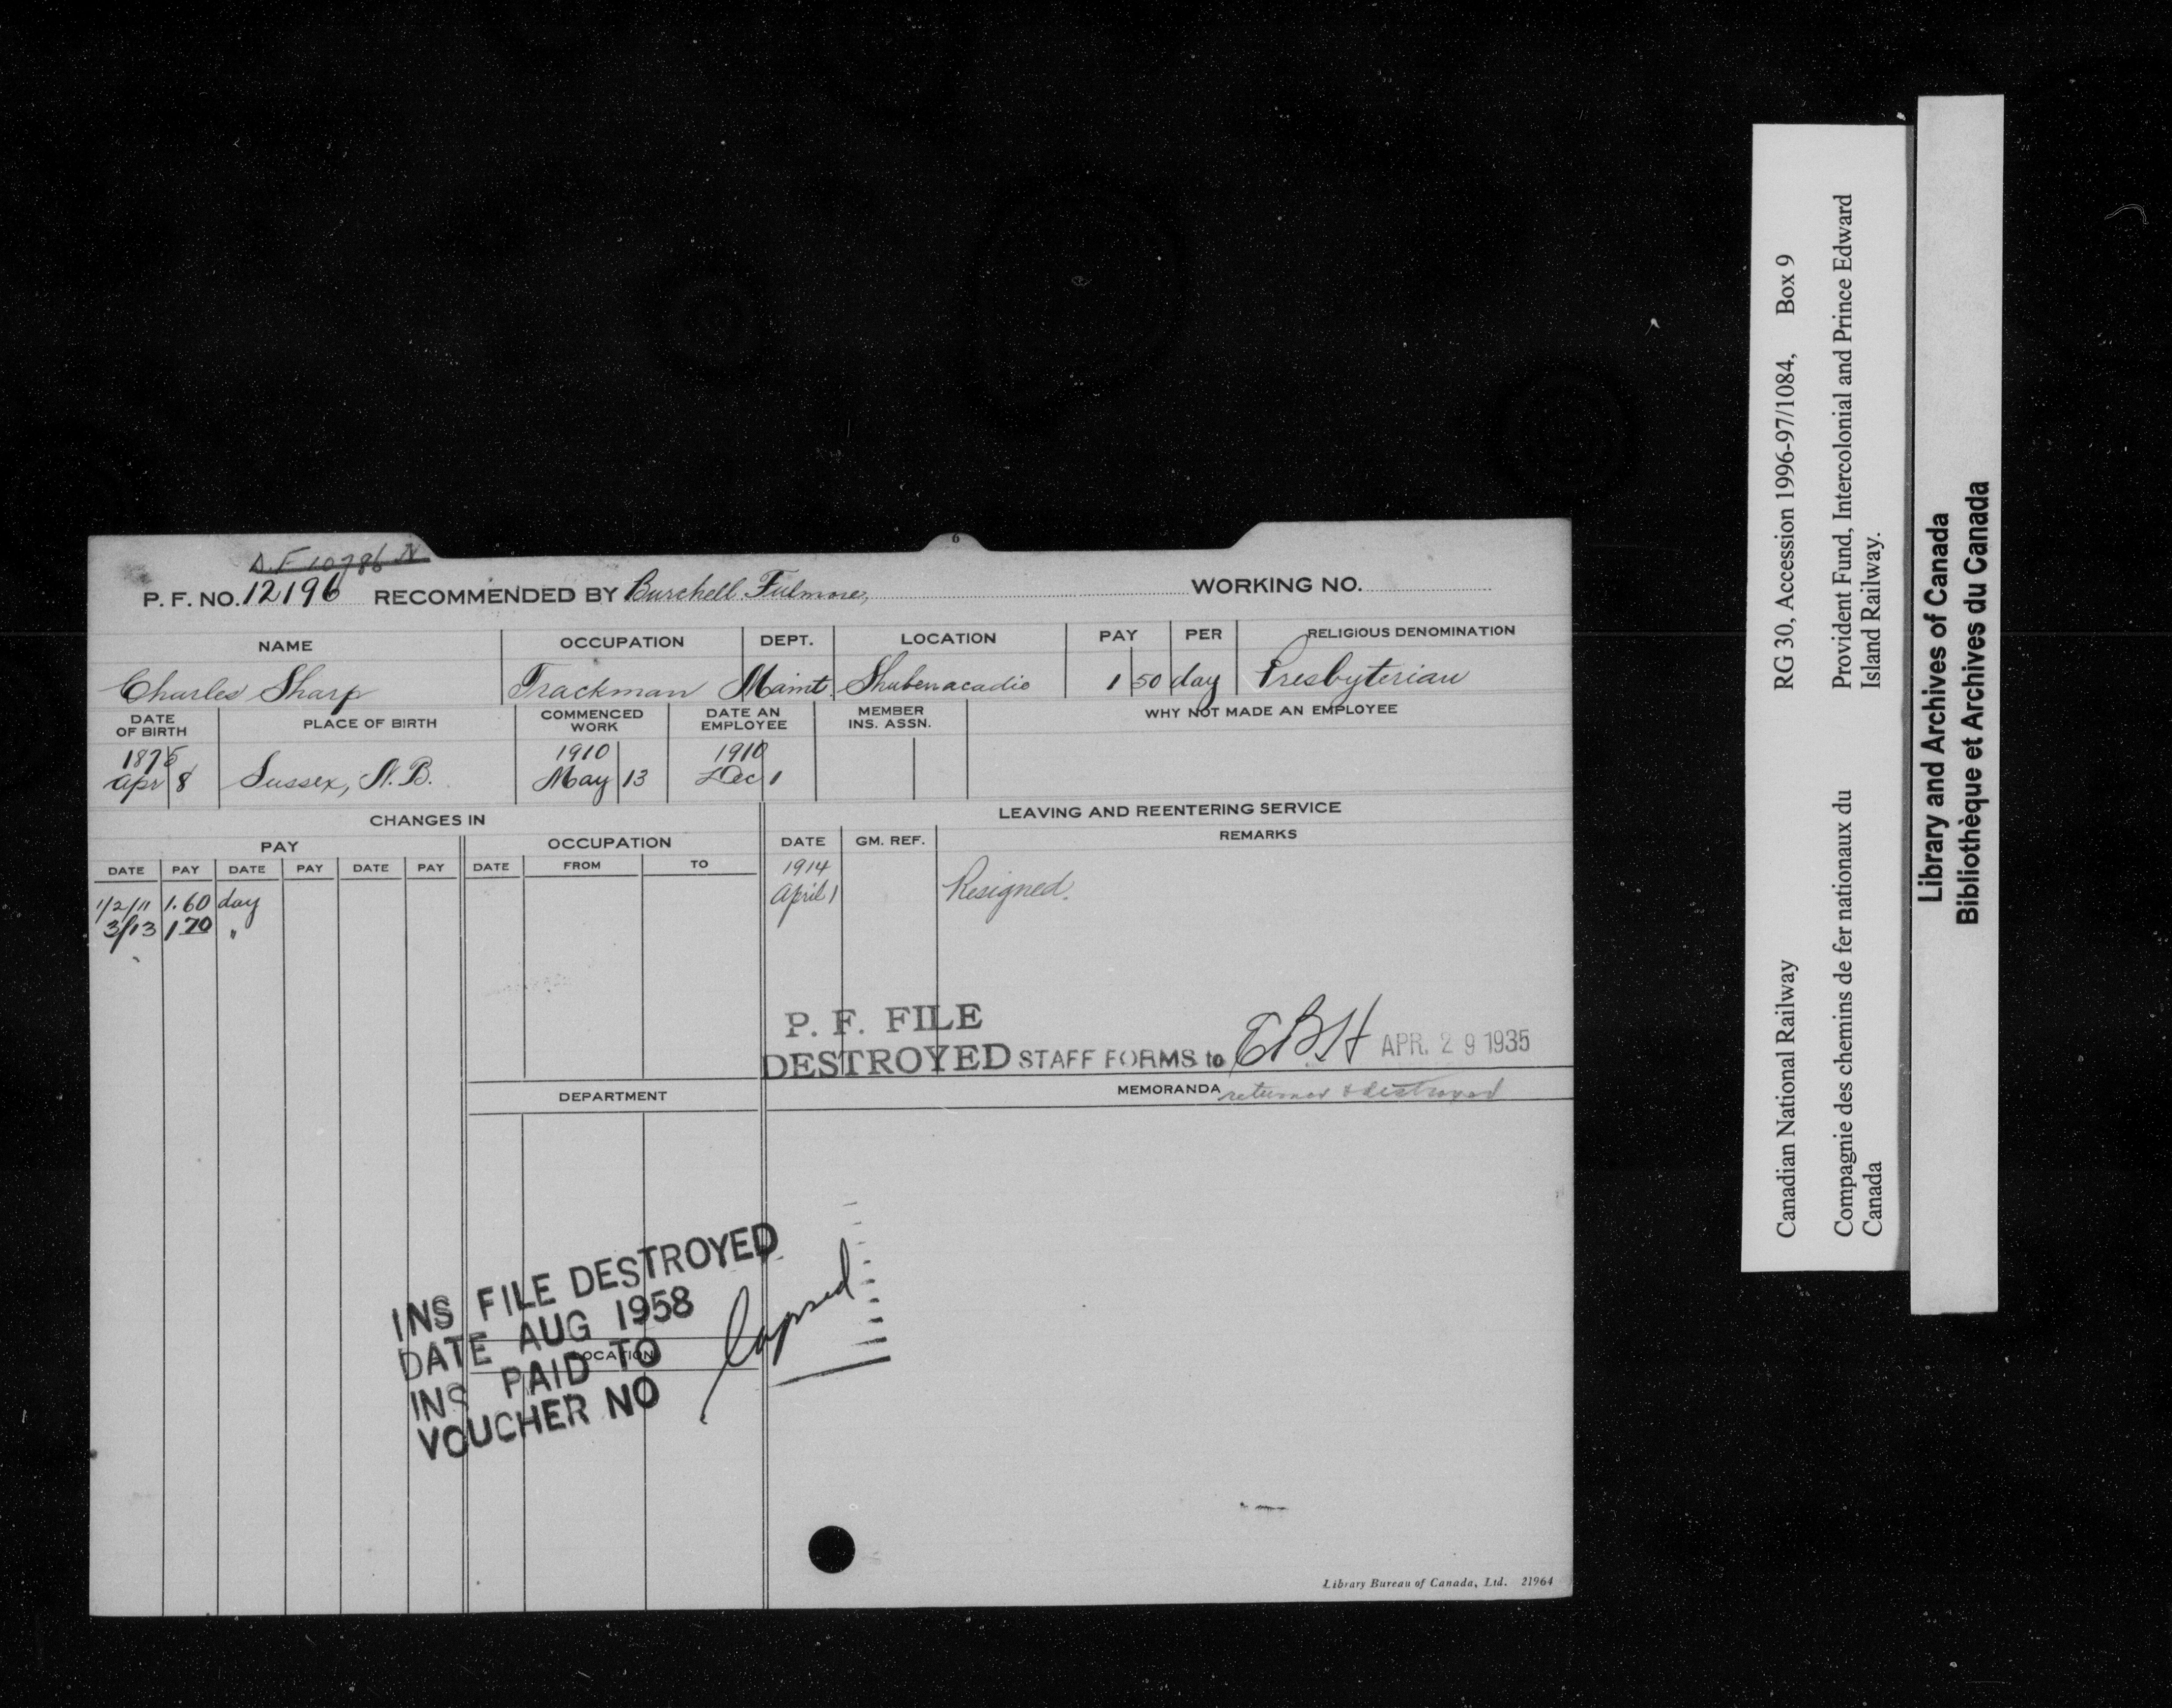 6
P. F. NO. 12196 RECOMMENDED BY Burchell Fulmore, WORKING NO.
NAME OCCUPATION DEPT. LOCATION PAY PER RELIGIOUS DENOMINATION
Charles Sharp Trackman Maint Shubenacadie 1 50 day Presbyterian
DATE OF BIRTH PLACE OF BIRTH COMMENCED WORK DATE AN EMPLOYEE MEMBER INS. ASSN. WHY NOT MADE AN EMPLOYEE
1875 1910 1910
Apr 8 Sussex, N.B. May 13 Dec 1
CHANGES IN LEAVING AND REENTERING SERVICE
PAY OCCUPATION DATE GM. REF. REMARKS
DATE PAY DATE PAY DATE PAY DATE FROM TO
1914
April 1 Resigned.
1/2/11 1.60 day
3/13 1 70 "
P. F. FILE
DESTROYED STAFF FORMS to EBH APR. 29 1935
MEMORANDA returned & destroyed
DEPARTMENT
INS FILE DESTROYED
DATE AUG 1958
INS PAID TO lapsed
VOUCHER NO
LOCATION
Library Bureau of Canada, Ltd. 21964
Canadian National Railway
RG 30, Accession 1996-97/1084, Box 9
Compagnie des chemins de fer nationaux du
Canada
Provident Fund, Intercolonial and Prince Edward
Island Railway.
Library and Archives of Canada
Bibliothèque et Archives du Canada